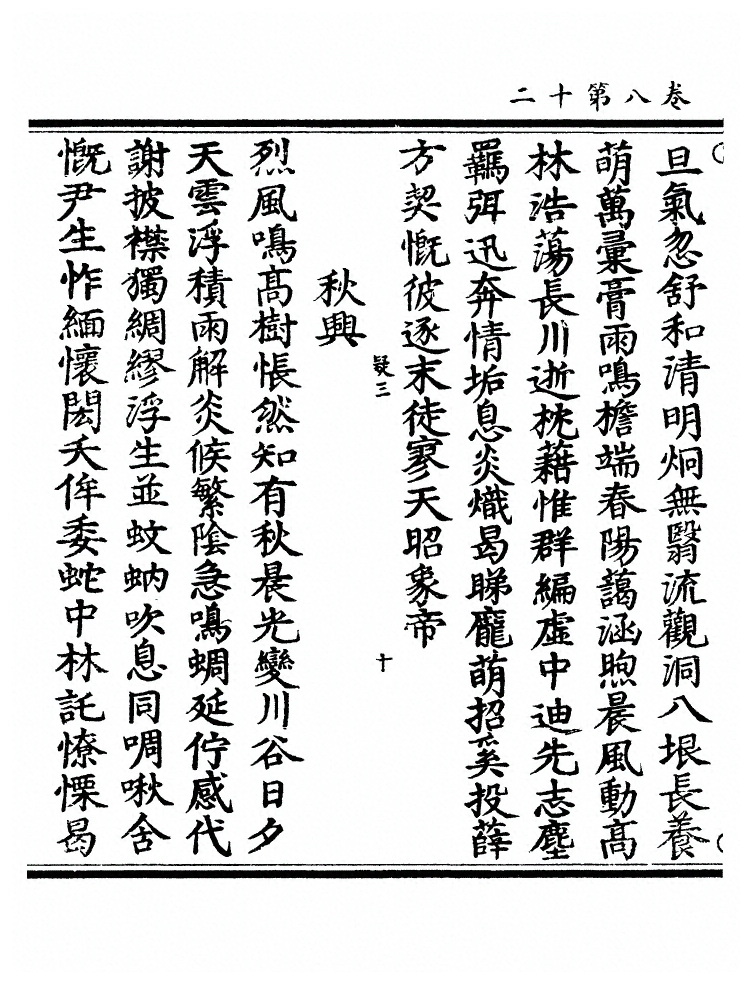 卷八第十二
旦氣忽舒和清明炯無翳流觀洞八垠長養
萌萬彙膏雨鳴檐端春陽藹涵煦晨風動高
林浩蕩長川逝枕藉惟群編虛中迪先志塵
羈弭迅奔情垢息炎熾曷睇龐萌招奚投薛
方契慨彼逐末徒寥天昭象帝
疑三
十
秋興
烈風鳴高樹悵然知有秋晨光變川谷日夕
天雲浮積雨解炎候繁陰急鳴蜩延佇感代
謝披襟獨綢繆浮生並蚊蚋吹息同啁啾舍
慨尹生怍緬懷閎夭侔委蛇中林託憭慄曷